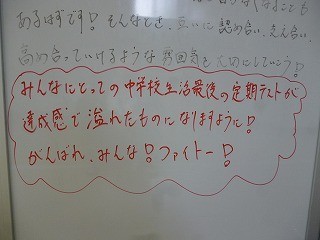 あるはずです!そんなとき、互いに認め合い、支え合い、
高め合っていけるような雰囲気を大切にしていこう!
みんなにとっての中学校生活最後の定期テストが
達成感で溢れたものになりますように!
がんばれ、みんな!ファイトー!